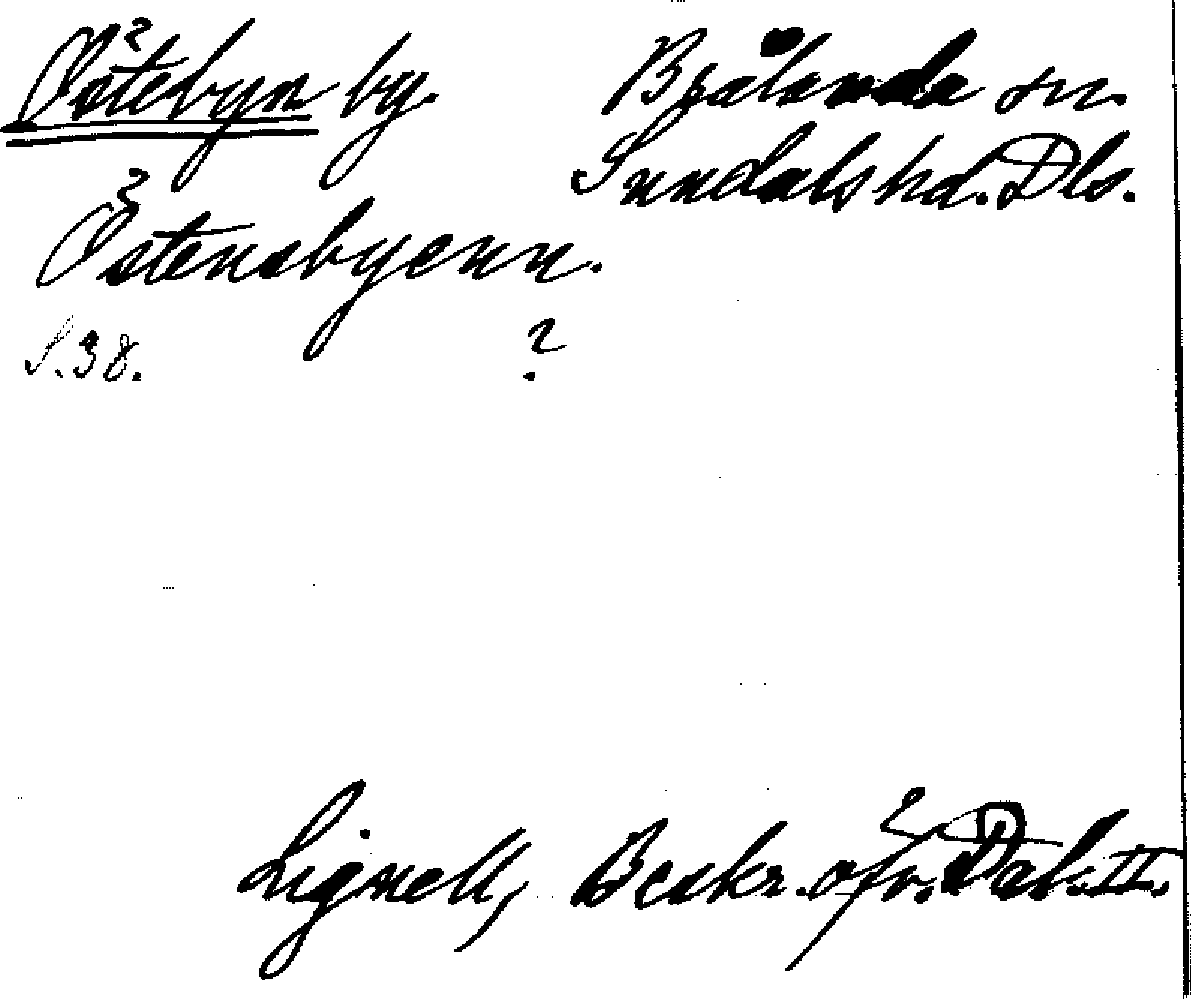 Östebyn by.
Brålanda sn.
Sundals hd. Dls.
Östensbyenn.
S. 38.
?
Lignell, Beskr. öfv. Dal. II.